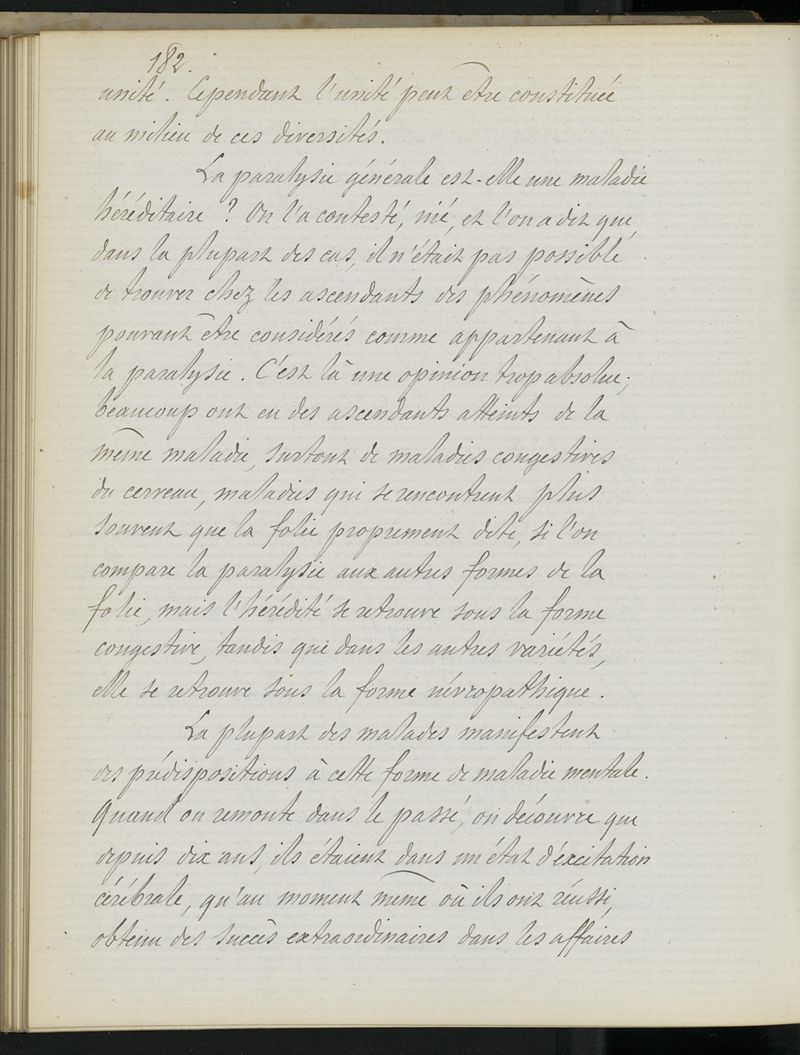 182.
unité. Cependant l'unité peut être constituée
au milieu de ces diversités.
La paralysie générale est-elle une maladie
héréditaire ? On l'a contesté, nié, et l'on a dit que,
dans la plupart des cas, il n'était pas possible
de trouver chez les ascendants des phénomènes
pouvant être considérés comme appartenant à
la paralysie. C'est là une opinion trop absolue;
beaucoup ont eu des ascendants atteints de la
même maladie, surtout de maladies congestives
du cerveau, maladies qui se rencontrent plus
souvent que la folie proprement dite, si l'on
compare la paralysie aux autres formes de la
folie, mais l'hérédité se retrouve sous la forme
congestive, tandis que dans les autres variétés,
elle se retrouve sous la forme névropathique.
La plupart des malades manifestent
des prédispositions à cette forme de maladie mentale.
Quand on remonte dans le passé, on découvre que
depuis dix ans, ils étaient dans un état d'excitation
cérébrale, qu'au moment même où ils ont réussi,
obtenu des succès extraordinaires dans les affaires